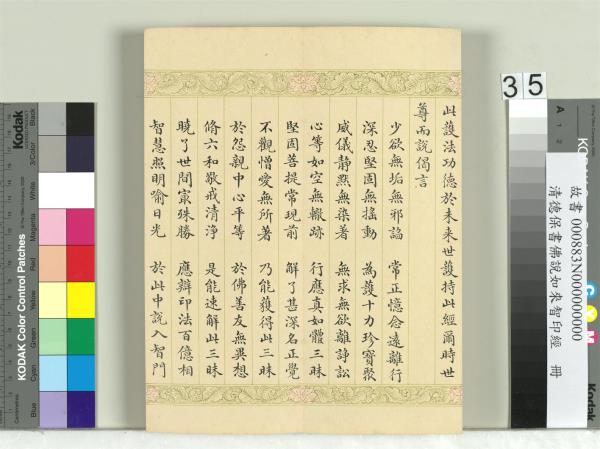 此護法功德於未来世護持此經爾時世
尊而說偈言
少欲無垢無邪諂　常正憶念遠離行
深忍堅固無搖動　為護十力珍寶聚
威儀静黙無染著　無求無欲離諍訟
心等如空無轍跡　行應真如體三昧
堅固菩提常現前　解了甚深名正覺
不觀憎愛無所著　乃能獲得此三昧
於怨親中心平等　於佛善友無異想
脩六和敬戒清淨　是能速解此三昧
曉了世間㝡殊勝　應辯印法百億相
智慧照明喻日光　於此中說入智門
35
故書 000883N000000000
清德保書佛說如來智印經　冊
Kodak
KODAK Color Control Patches
Blue
Cyan
Green
Yellow
Red
Magenta
White
3/Color
Black
A 1 2
Kodak